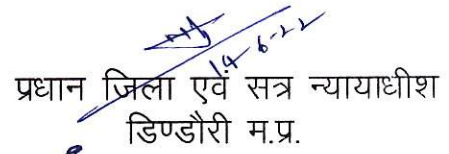 14-6-22
प्रधान जिला एवं सत्र न्यायाधीश
डिण्डौरी म.प्र.